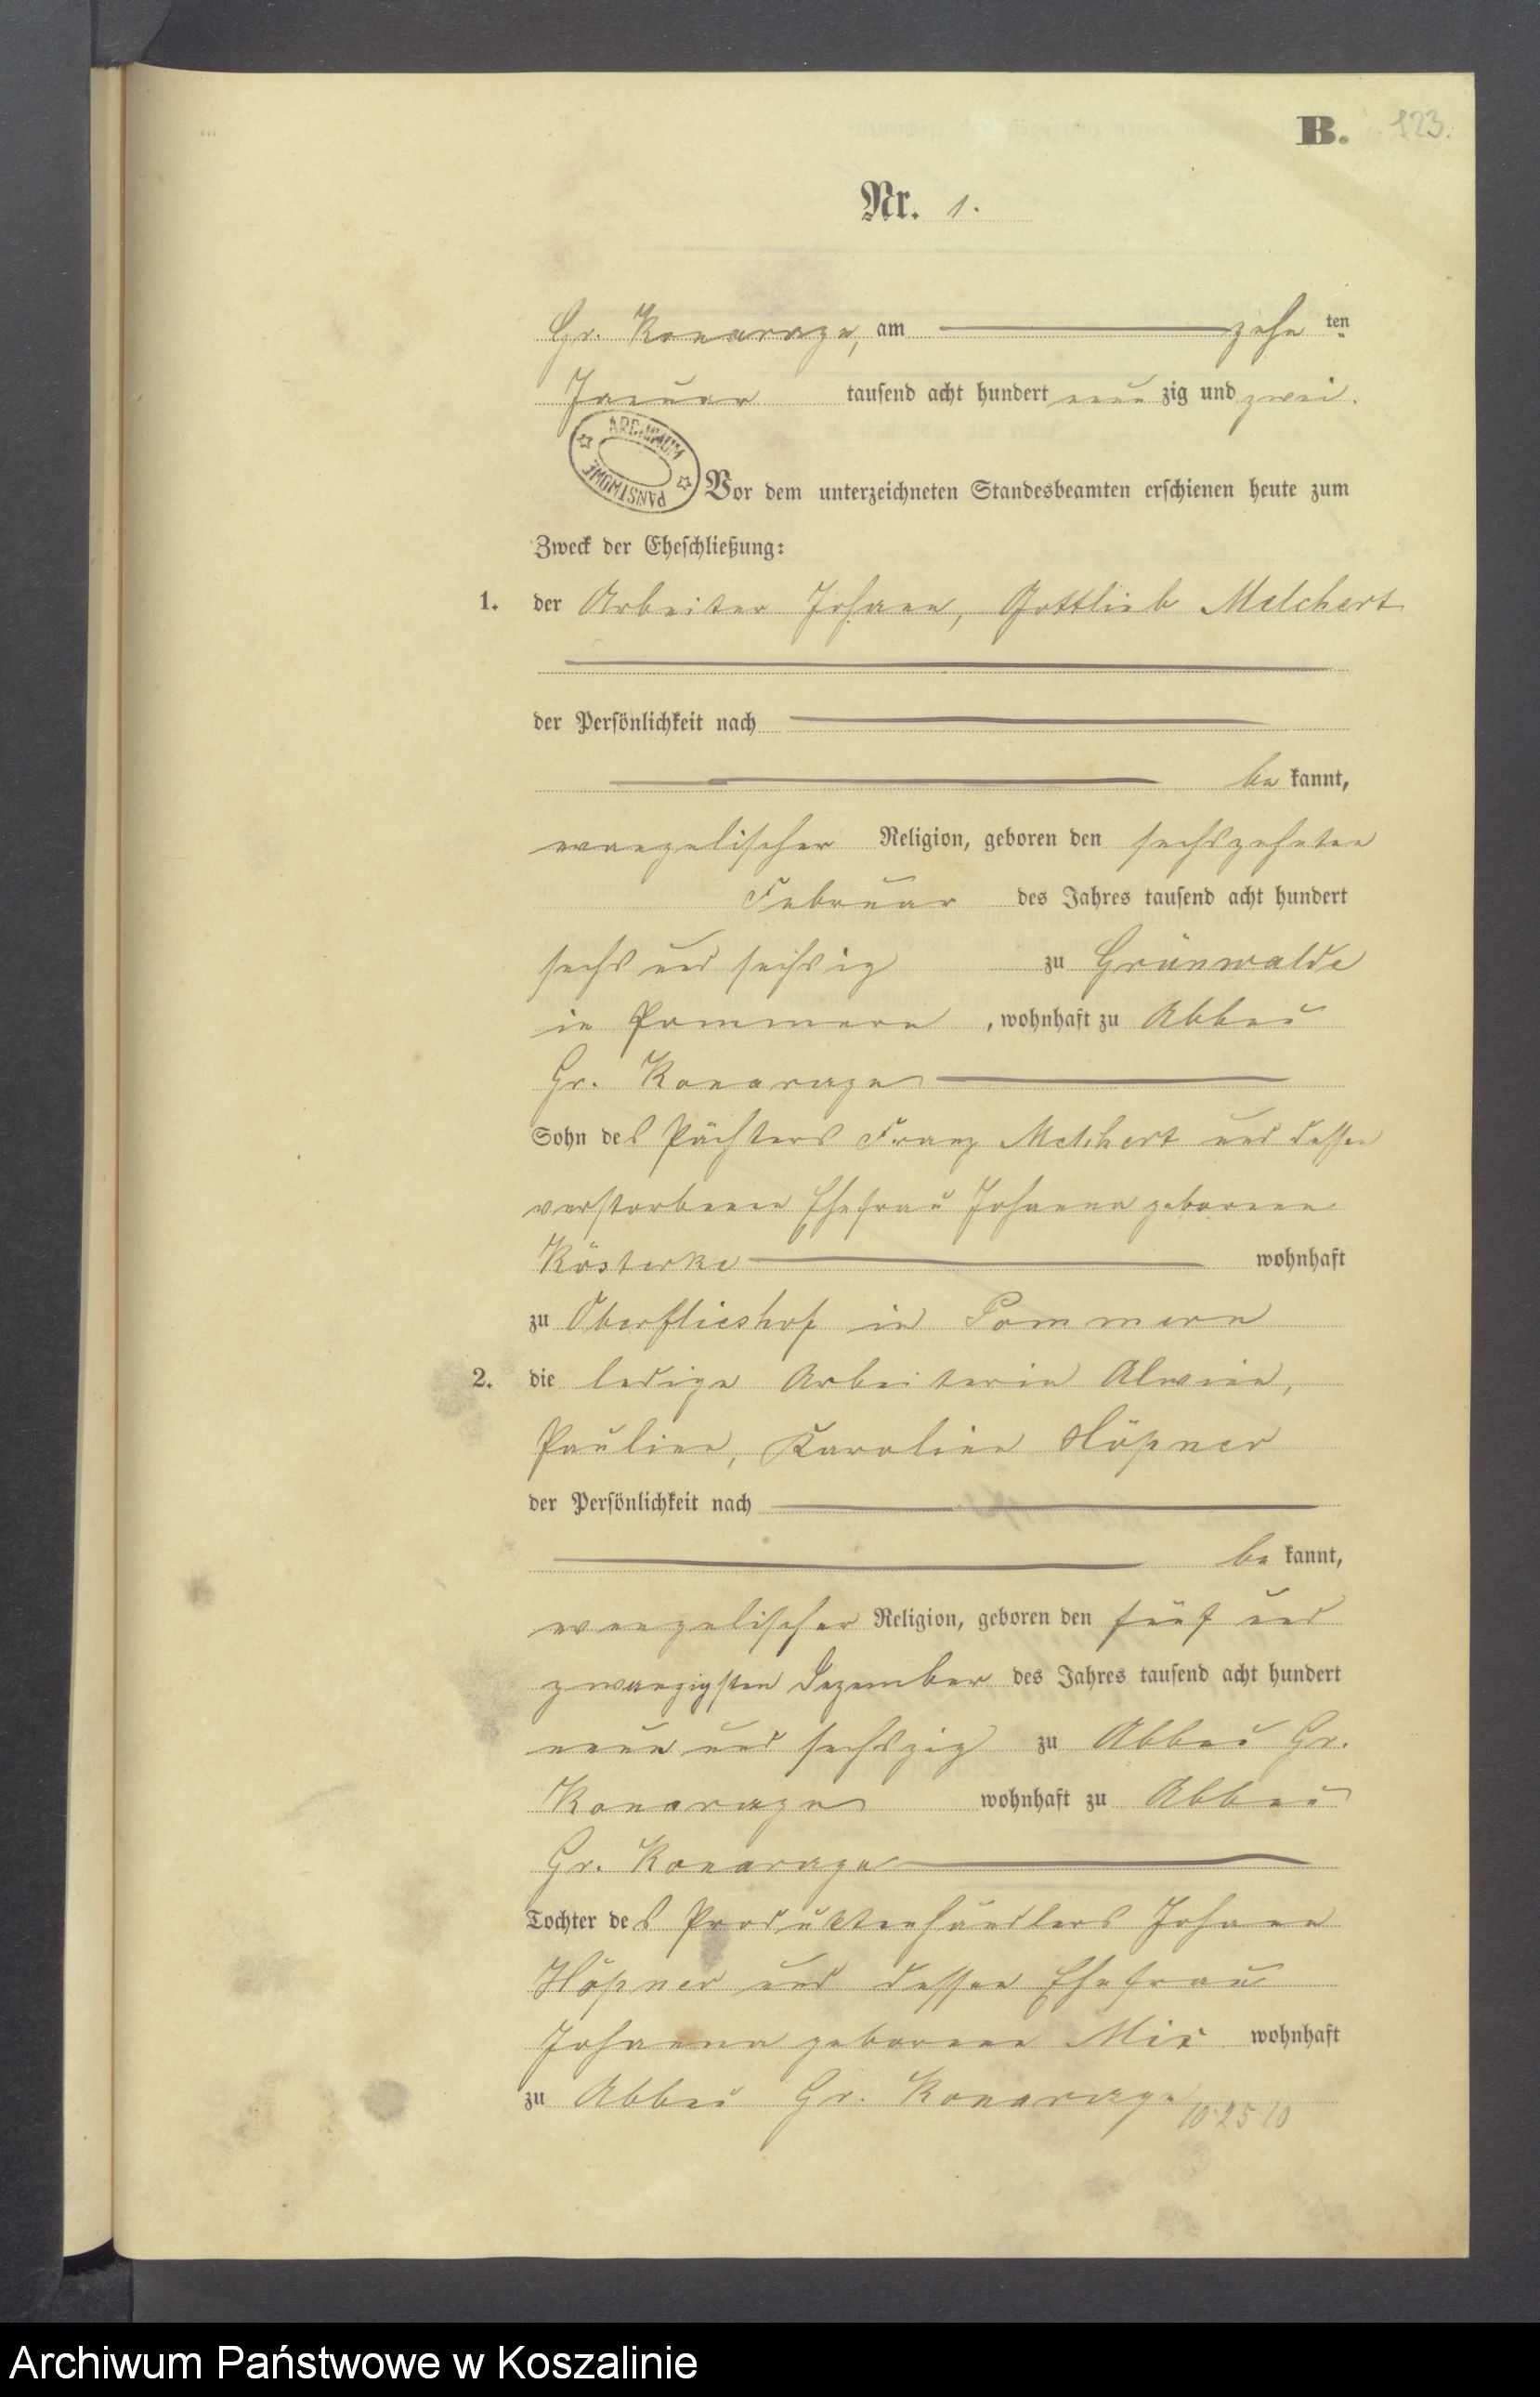 B. 123.
Nr. 1.
Gr. Konarczyn, am zehn ten
Januar tausend acht hundert neun zig und zwei.
ARCHIWUM PAŃSTWOWE
Vor dem unterzeichneten Standesbeamten erschienen heute zum
Zweck der Eheschließung:
1. der Arbeiter Johann, Gottlieb Melchert
der Persönlichkeit nach
be kannt,
evangelischer Religion, geboren den sechszehnten
Februar des Jahres tausend acht hundert
sechs und sechszig zu Grünwalde
in Pommern, wohnhaft zu Abbau
Gr. Konarczyn
Sohn des Pächters Franz Melchert und dessen
verstorbenen Ehefrau Johanna geborenen
Kösterke wohnhaft
zu Oberflieshof in Pommern
2. die ledige Arbeiterin Alwine,
Pauline, Karoline Höpner
der Persönlichkeit nach
be kannt,
evangelischer Religion, geboren den fünf und
zwanzigsten Dezember des Jahres tausend acht hundert
neun und sechszig zu Abbau Gr.
Konarczyn wohnhaft zu Abbau
Gr. Konarczyn
Tochter des Produktenhändlers Johann
Höpner und dessen Ehefrau
Johanna geborenen wohnhaft
zu Abbau Gr. Konarczyn
10 25 10
Archiwum Państwowe w Koszalinie